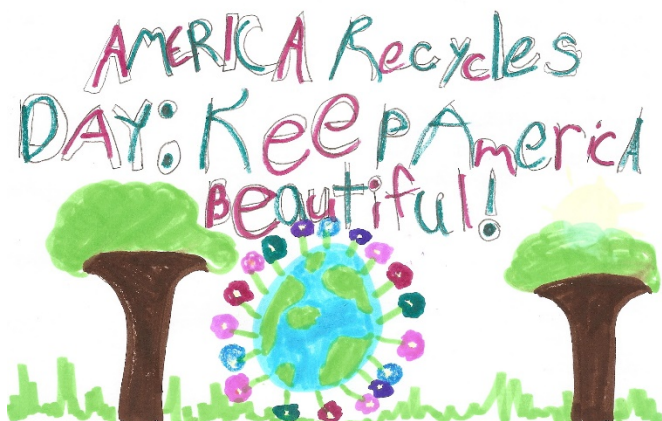 AMERICA Recycles
DAY: Keep America
Beautiful!